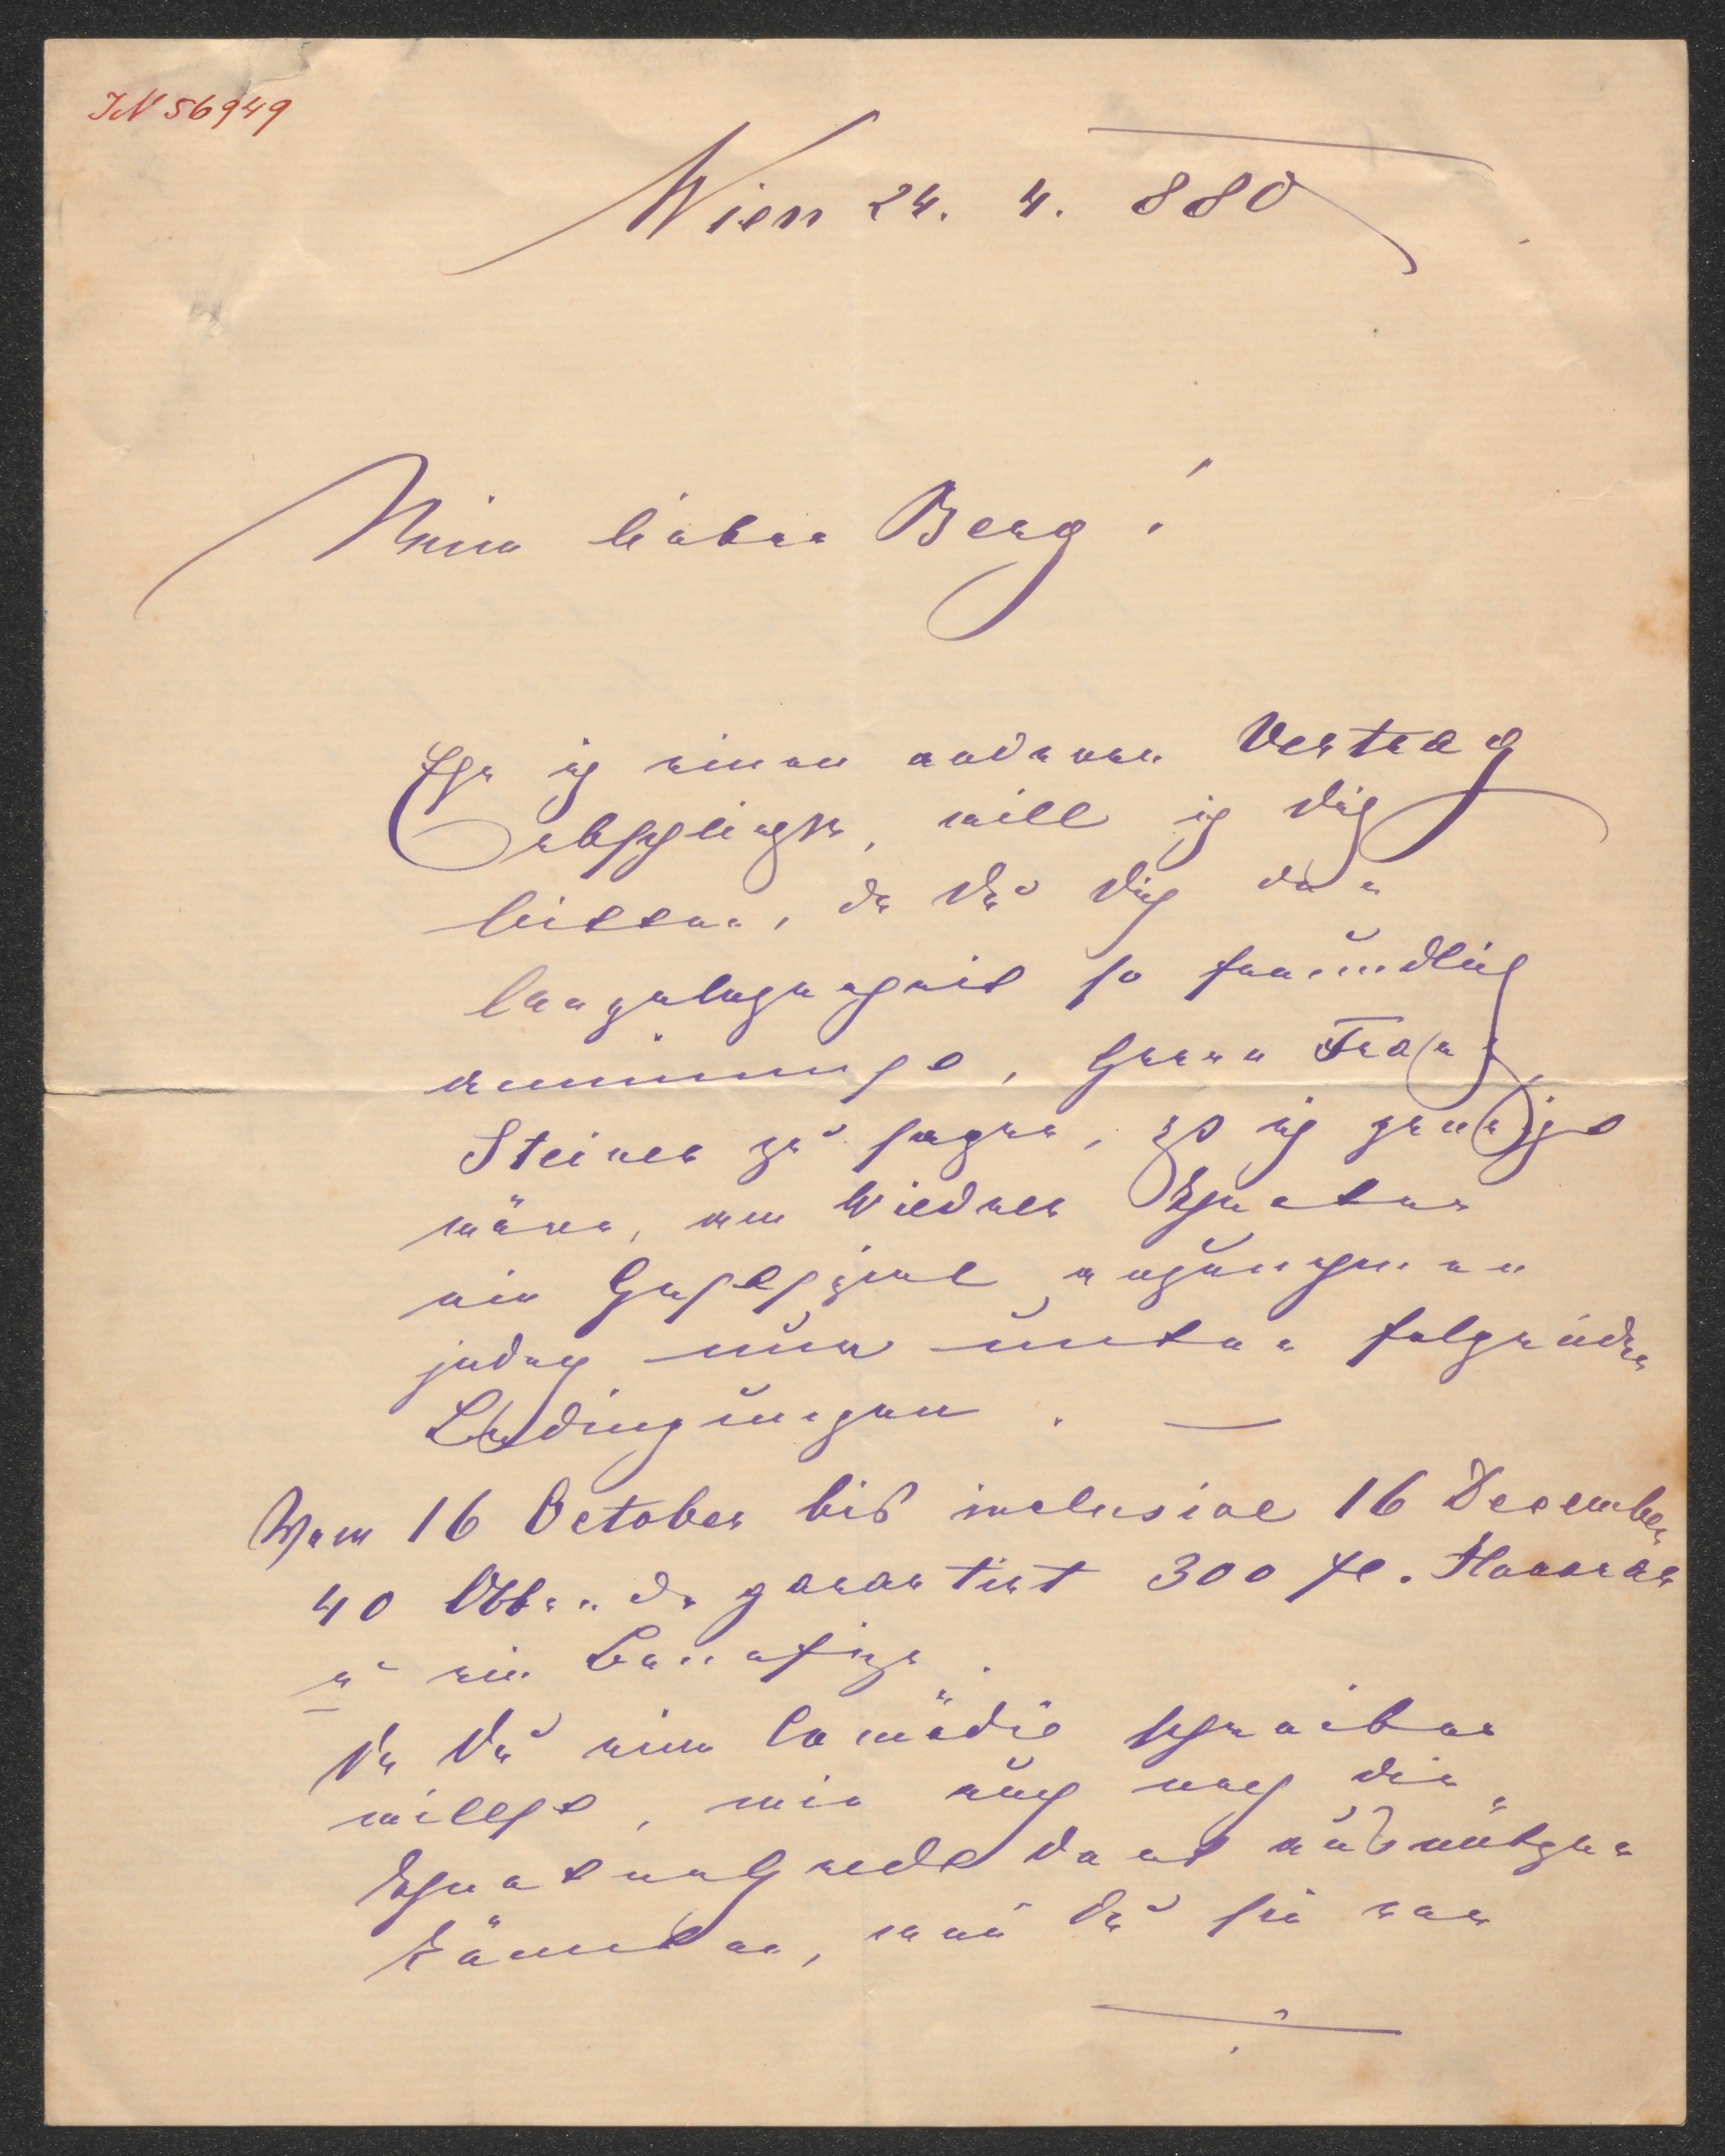 IN 56949
Wien 24. 4. 880
Mein lieber Berg!
Ehe ich einen anderen Vertrag
abschließe, will ich Dich
bitten, da Du Dich der
Angelegenheit so freundlich
annimmst, Herrn Franz
Steiner zu sagen, daß ich geneigt
wäre, am Wiedner Theater
ein Gastspiel anzunehmen
jedoch nur unter folgenden
Bedingungen. —
Vom 16 October bis inclusive 16 December
40 Abende garantirt 300 fl. Honorar
u ein Benefize.
Da Du eine Comödie schreiben
willst, wir auch noch die
ausnützen
könnten, Du sie